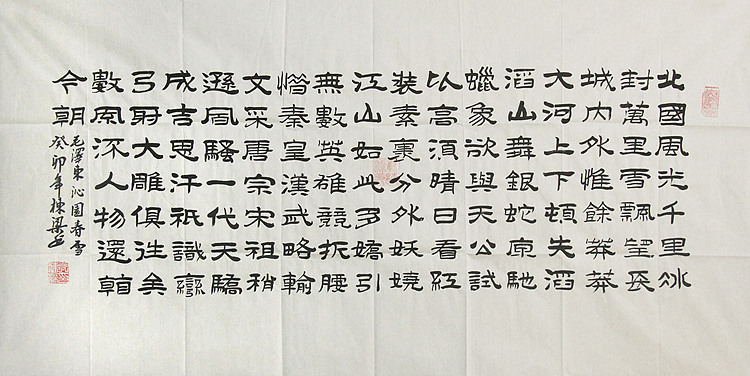 北國風光千里冰
封萬里雪飄望長
城内外惟餘莽莽
大河上下頓失滔
滔山舞銀蛇原馳
蠟象欲與天公試
以高須晴日看紅
装素裹分外妖嬈
江山如此多嬌引
無數英雄競折腰
惜秦皇漢武略輸
文采唐宗宋祖稍
遜風騷一代天驕
成吉思汗祇識彎
弓射大雕俱往矣
數風流人物還看
今朝
毛澤東沁園春雪
癸卯年棟梁书